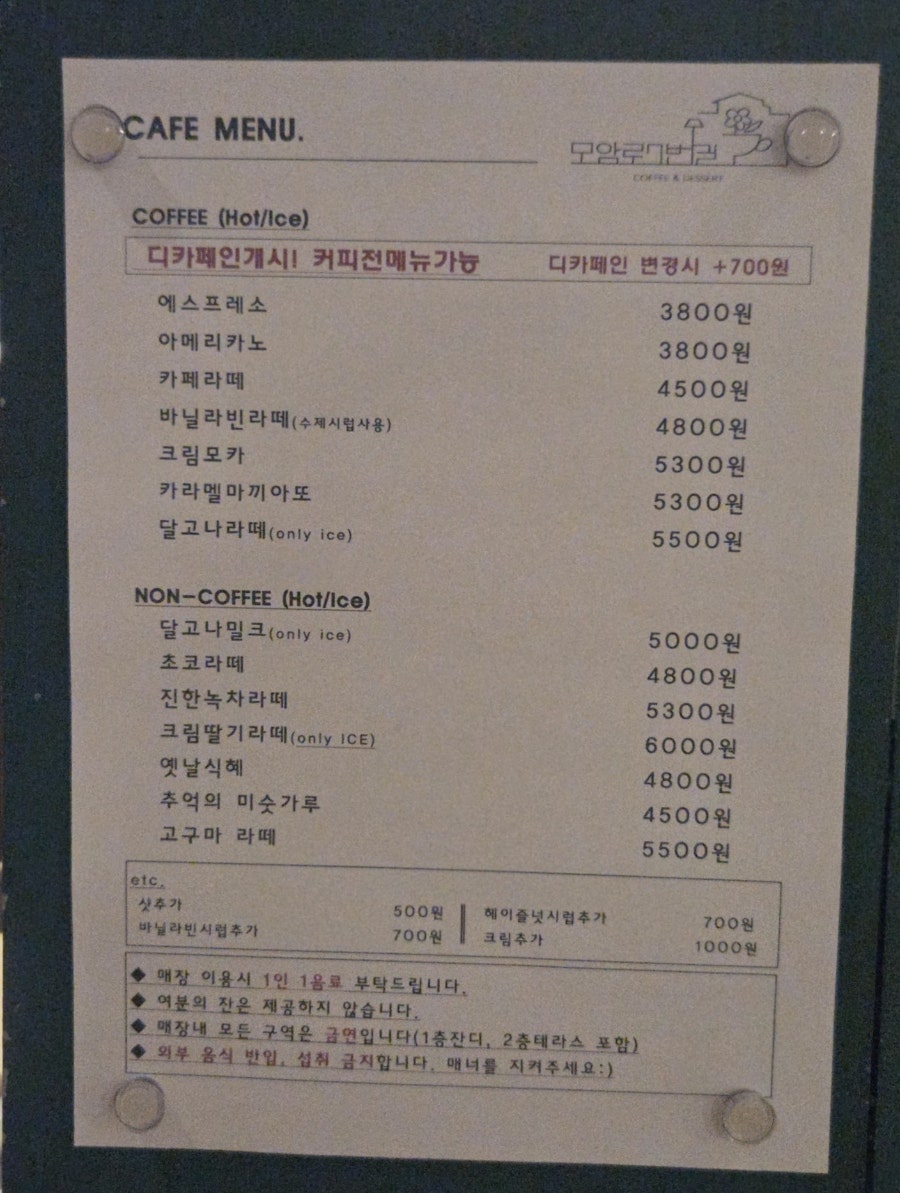 CAFE MENU.
모암로7번길
COFFEE & DESSERT
COFFEE (Hot/Ice)
디카페인개시! 커피전메뉴가능 디카페인 변경시 +700원
에스프레소 3800원
아메리카노 3800원
카페라떼 4500원
바닐라빈라떼(수제시럽사용) 4800원
크림모카 5300원
카라멜마끼아또 5300원
달고나라떼(only ice) 5500원
NON-COFFEE (Hot/Ice)
달고나밀크(only ice) 5000원
초코라떼 4800원
진한녹차라떼 5300원
크림딸기라떼(only ICE) 6000원
옛날식혜 4800원
추억의 미숫가루 4500원
고구마 라떼 5500원
etc.
샷추가 500원 헤이즐넛시럽추가 700원
바닐라빈시럽추가 700원 크림추가 1000원
◆ 매장 이용시 1인 1음료 부탁드립니다.
◆ 여분의 잔은 제공하지 않습니다.
◆ 매장내 모든 구역은 금연입니다(1층잔디, 2층테라스 포함)
◆ 외부 음식 반입, 섭취 금지합니다. 매너를 지켜주세요:)